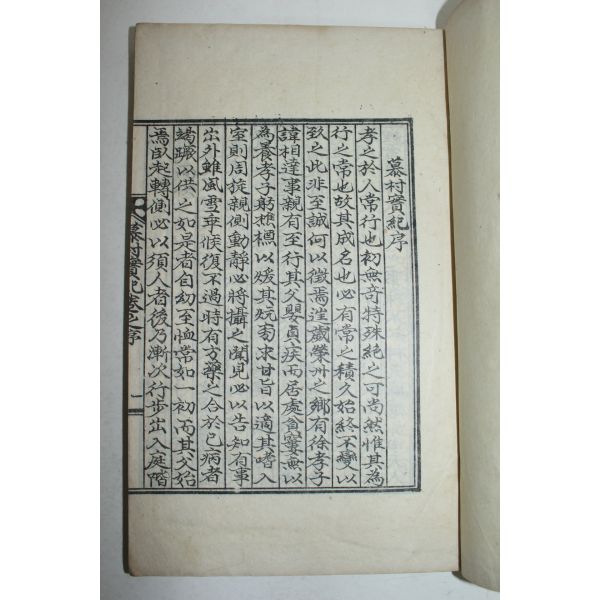 慕村實紀序
孝之於人常行也初無奇特殊絶之可尚然惟其為
行之常也故其成名也必有常之積久始終不變以
致之此非至誠何以徵焉往歲榮州之鄉有徐孝子
諱相達事親有至行其父嬰貞疾而居處貧窶無以
為養孝子躬樵槱以煖其炕匍求甘旨以適其嗜入
室則周旋親側動靜必將攝之聞見必以告知有事
出外雖風雪乖候復不過時有方藥之合於已病者
竭蹶以供之如是者自幼至恤常如一初而其父始
焉臥起轉側必以須人者後乃漸次行步出入庭階
慕村實紀卷之序
一